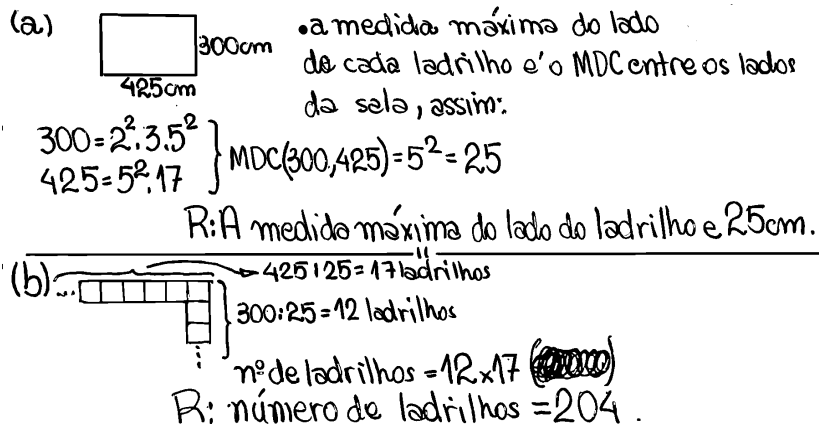 (a) 300cm • a medida máxima do lado
425cm de cada ladrilho e' o MDC entre os lados
da sala, assim:
300 = 2².3.5²
425 = 5².17 } MDC(300,425) = 5² = 25
R: A medida máxima do lado do ladrilho e 25cm.
(b) ... 425:25 = 17 ladrilhos
300:25 = 12 ladrilhos
nº de ladrilhos = 12x17
R: número de ladrilhos = 204.